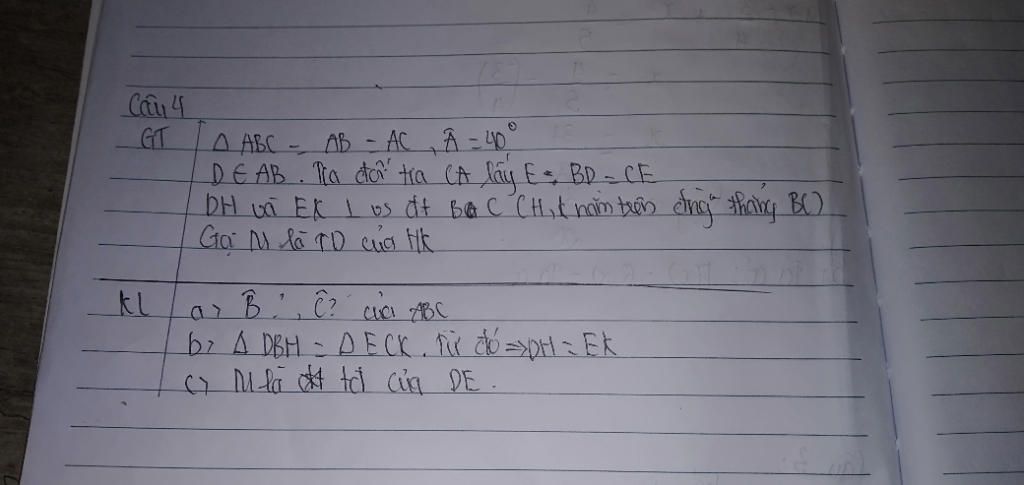 Câu 4
GT Δ ABC - AB = AC , Â = 40°
D ∈ AB . Tia đối tia CA lấy E : BD = CE
DH và EK ⊥ vs đt BC (H, K nằm trên đường thẳng BC)
Gọi M là TD của HK
KL a> B̂ ? , Ĉ ? của ABC
b> Δ DBH = Δ ECK . Từ đó => DH = EK
c> M là tđ của DE .